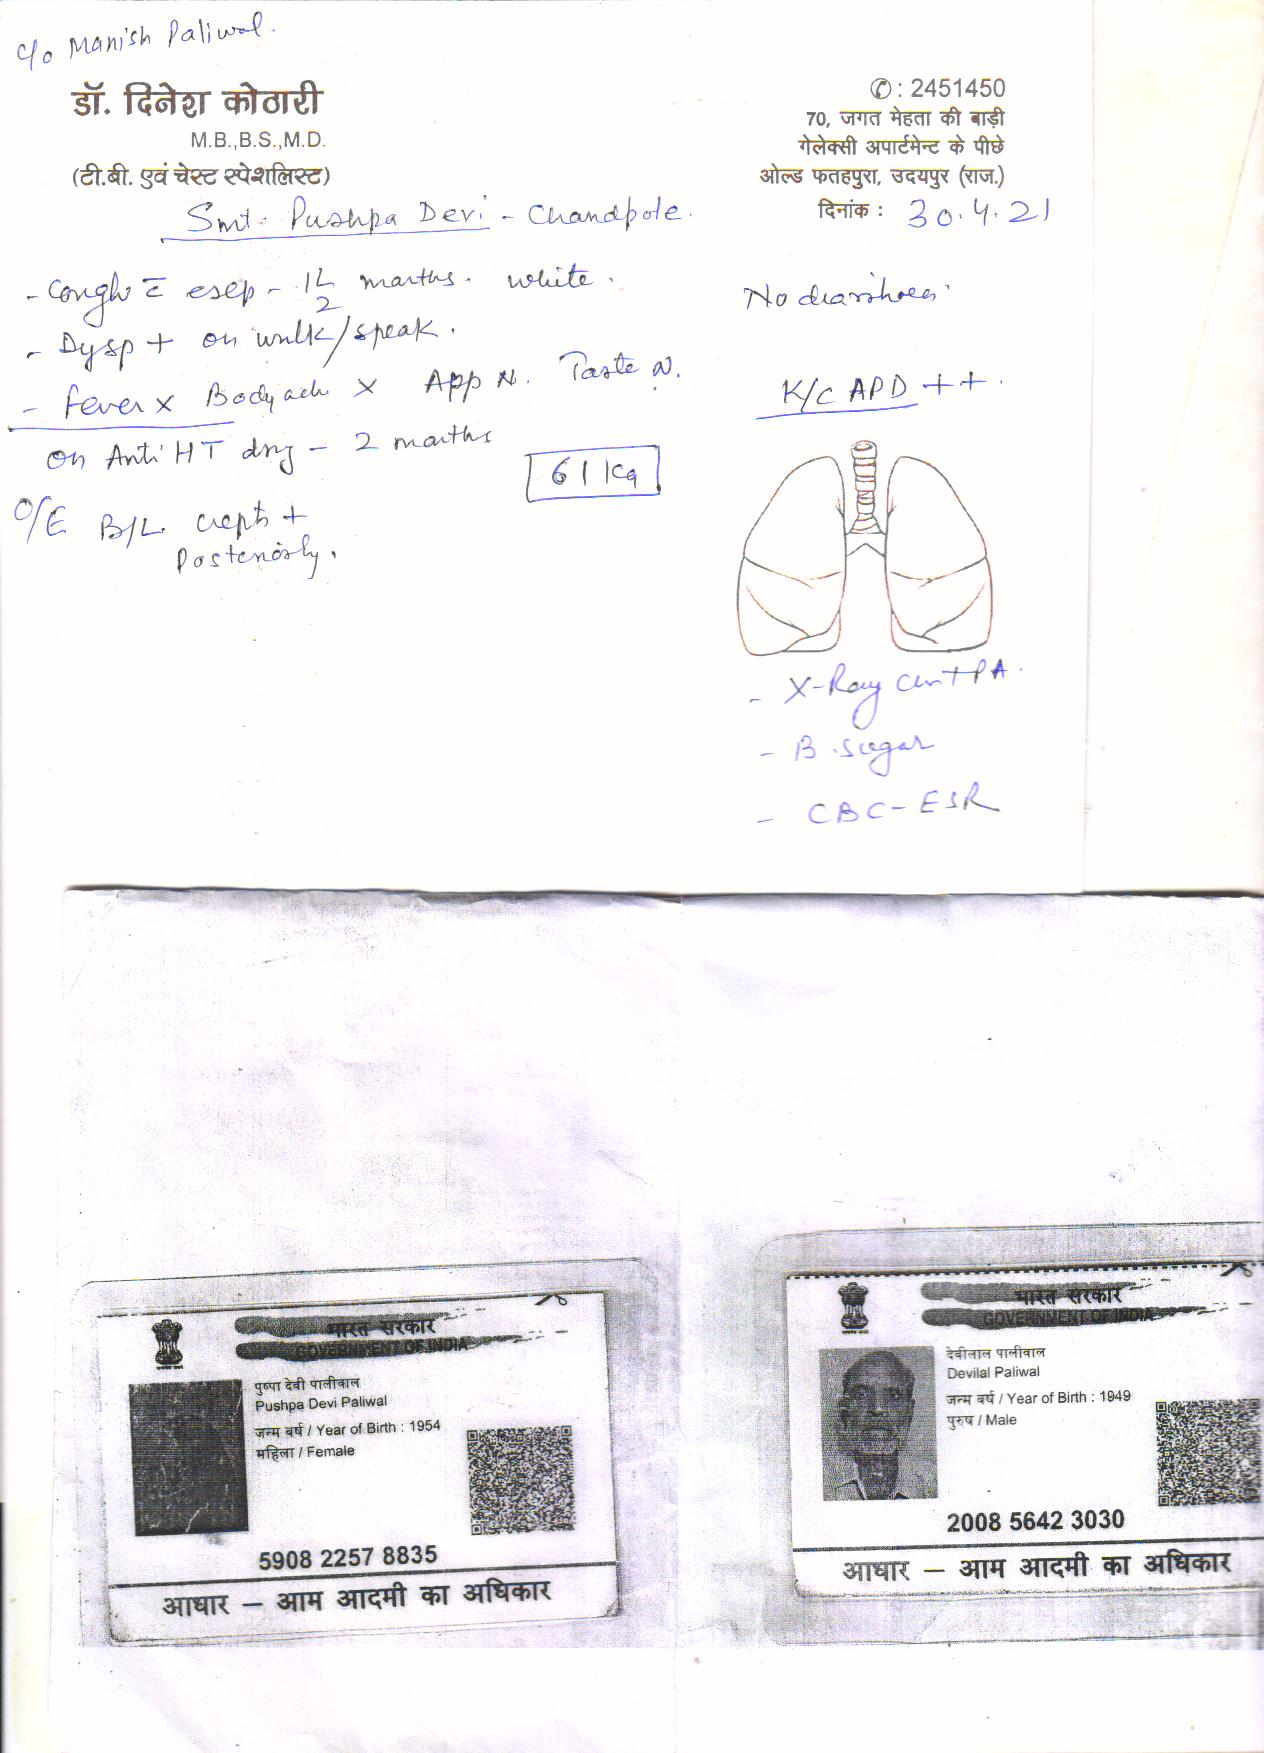 c/o Manish Paliwal.
डॉ. दिनेश कोठारी
M.B.,B.S.,M.D.
(टी.बी. एवं चेस्ट स्पेशलिस्ट)
✆ : 2451450
70, जगत मेहता की बाड़ी
गेलेक्सी अपार्टमेन्ट के पीछे
ओल्ड फतहपुरा, उदयपुर (राज.)
दिनांक : 30.4.21
Smt. Pushpa Devi - Chandpole.
- Cough c̄ - 1 1/2 months. white.
- Dysp + on walk/speak.
- Fever x Bodyach x App N. Taste N.
on Anti HT drug - 2 months
61 Kg
O/E B/L. crepts +
Posteriorly.
No diarrhoea.
K/C APD ++.
- X-Ray chest PA.
- B. sugar
- CBC - ESR
भारत सरकार
GOVERNMENT OF INDIA
पुष्पा देवी पालीवाल
Pushpa Devi Paliwal
जन्म वर्ष / Year of Birth : 1954
महिला / Female
5908 2257 8835
आधार – आम आदमी का अधिकार
भारत सरकार
GOVERNMENT OF INDIA
देवीलाल पालीवाल
Devilal Paliwal
जन्म वर्ष / Year of Birth : 1949
पुरुष / Male
2008 5642 3030
आधार – आम आदमी का अधिकार